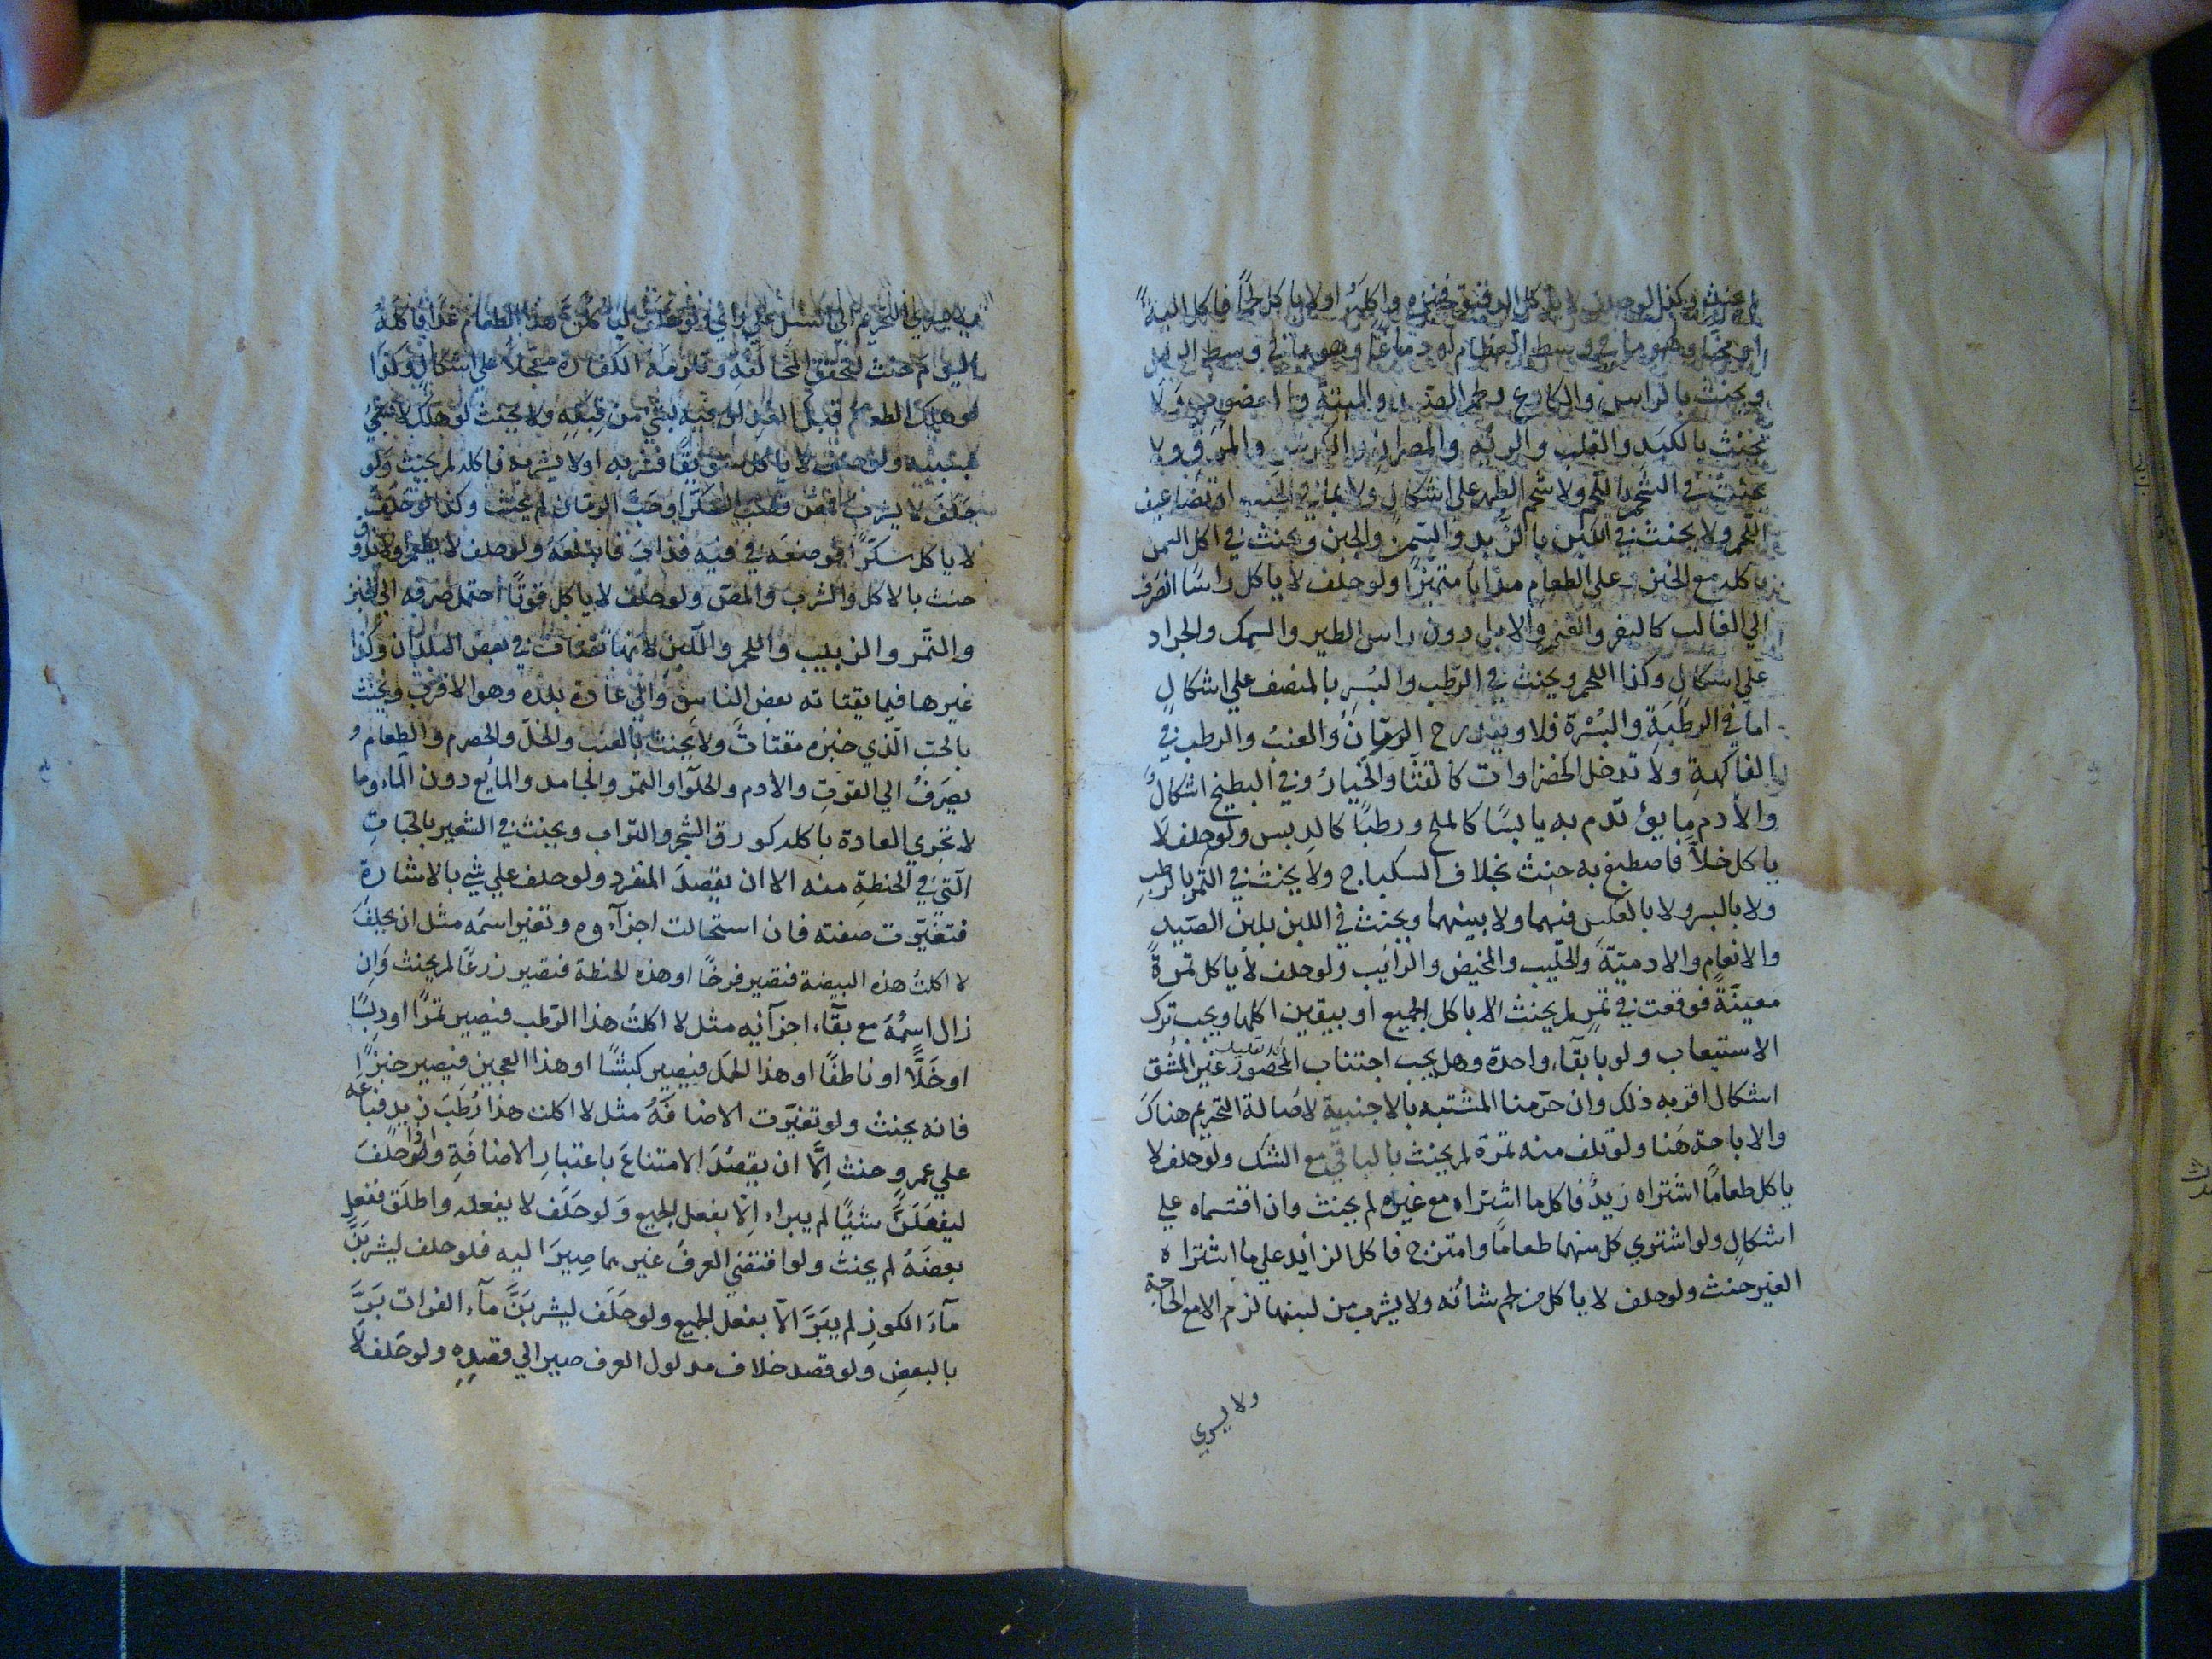 لم يحنث وكذا لو حلف لا ياكل الدقيق فخبزه واكله اولا ياكل لحمًا فاكل اليةً
او مخا وهو ما في وسط العظام او دماغا وهو ما في وسط الراس
ويحنث بالراس والكارع ولحم الصيد والميتة والمغصوب ولا
يحنث بالكبد والقلب والرية والمصران والكرش والمرق ولا
يحنث في الشحم باللحم ولا شحم الظهر على اشكال ولا بما في الجنب او تضاعيف
اللحم ولا يحنث في اللبن بالزبد والسمن والجبن ويحنث في اكل السمن
باكله مع الخبز وعلى الطعام مذابا متميزًا ولو حلف لا ياكل راسًا انصرف
الي الغالب كالبقر والغنم والابل دون راس الطير والسمك والجراد
علي اشكالٍ وكذا اللحم ويحنث في الرّطب والبُسرِ بالمنصف علي اشكالٍ
اما في الرطَبَةِ والبُسْرَةِ فلا ويندرج الرمّانُ والعنبُ والرطب في
الفاكهةِ ولا تدخل الخضراوات كالقثّا والخيارُ وفي البطيخ اشكالٌ
والأدم ما يؤتدم به يابسًا كالملح ورطبًا كالدبس ولو حلف لا
ياكل خلاًّ فاصطبغ به حنث بخلاف السكباج ولا يحنث في التمر بالرطب
ولا بالبسر ولا بالعكس فيهما ولا بينهما ويحنث في اللبن بلبن الصّيد
والانعام والادميّة والحليب والمخيض والرايب ولو حلف لا ياكل تمرةً
معينّةً فوقعت في تمرٍ لم يحنث الا باكل الجميع او بيقين اكلها ويجب ترك
الاستيعاب ولو بابقآء واحدة وهل يجب اجتناب المحصور غير المُشق
اشكال اقربه ذلك وان حرّمنا المشتبه بالاجنبية لاصالة التحريم هناك
والاباحة هُنا ولو تلف منه تمرة لم يحنث بالباقي مع الشك ولو حلف لا
ياكل طعامًا اشتراه زيدٌ فاكل ما اشتراه مع غيره لم يحنث وان اقتسماه علي
اشكالٍ ولو اشتري كل منهما طعامًا وامتزج فاكل الزايد علي ما اشتراه
الغير حنث ولو حلف لا ياكل من لحم شاته ولا يشرب من لبنها لزم الا مع الحاجة
ولا يسري
التحريم الي النسل علي راي ولو حلف لياكلن هذا الطعام غدًا فاكله
اليوم حنث لتحقق المخالفة وتلزمه الكفارة معجّلاً علي اشكالٍ وكذا
لو هلك الطعام قبل الغد او فيه بشي من قِبَلِهِ ولا يحنث لو هلك لا
بسببه ولو حلف لا ياكل سويقًا فشربه اولا يشربه فاكله لم يحنث ولو
حلَفَ لا يشرب فمصّ قصب السّكر او حَبَّ الرمّان لم يحنث وكذا لو حلف
لا ياكل سكرًا فوضعه في فيه فذاب فابتلعَهُ ولو حلف لا يطعم اولا يذوق
حنث بالاكل والشرب والمصّ ولو حلف لا ياكل قوتًا احتمل صرفه الي الخبز
والتّمر والزبيب واللحم واللّبن لانّها تقتات في بعض البلدان وكذا
غيرها فيما يقتاته بعض الناس والي عادة بلده وهو الاقرب ويحنث
بالحب الّذي خبزه مقتاتٌ ولا يحنث بالعنب والخلّ والحصرم والطعام و
يصرفُ الي القوتِ والأدم والحلوا والتمر والجامد والمايع دون الماء وما
لا تجري العادة باكله كورق الشجر والتراب ويحنث في الشعير بالحبّاتِ
الّتي في الحنطةِ منه الا ان يقصدَ المنفرد ولو حلف علي شي بالاشارةِ
فتغيّرت صفته فان استحالت اجزآءوه وتغير اسمَه مثل ان يحلفَ
لا اكلتُ هذه البيضة فتصير فرخًا او هذه الحنطة فتصير زرعًا لم يحنث وان
زال اسمُهُ مع بقآء اجزآئه مثل لا اكلتُ هذا الرّطب فيصير تمرًا او دبسًا
او خَلاًّ او ناطفًا او هذا الحمَل فيصير كبشًا او هذا العجين فيصير خبزًا
فانه يحنث ولو تغيّرت الاضافَةُ مثل لا اكلت هذا رُطبَ زيدٍ فباعه
علي عمروٍ حنث اِلّا ان يقصُدَ الامتناعَ باعتبارِ الاضافَةِ ولو حلفَ
ليفعَلَنَّ شيئًا لم يبراء اِلّا بفعل الجميع ولو حَلَف لا يفعله واطلَق ففعل
بعضَهُ لم يحنث ولو اقتضي العرفُ غيرهما صِيرَ اليه فلو حلف ليشربَنَّ
مآءَ الكوزِ لم يبَرَّ الّا بفعل الجميع ولو حَلَف ليشربَنَّ مآء الفرات بَرَّ
بالبعضِ ولو قصد خلاف مدلول العرف صير الي قصدِهِ ولو حَلف لا